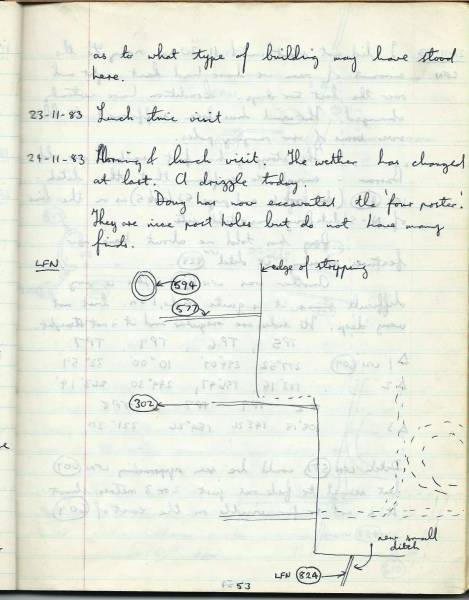 as to what type of building may have stood
here.
23-11-83 Lunch time visit
24-11-83 Morning & lunch visit. The wether has changed
at last. A drizzle today.
Doug has now excavated the 'four poster'.
They are nice post holes but do not have many
finds.
LFN
edge of stripping
594
577
302
new small
ditch
LFN 824
53